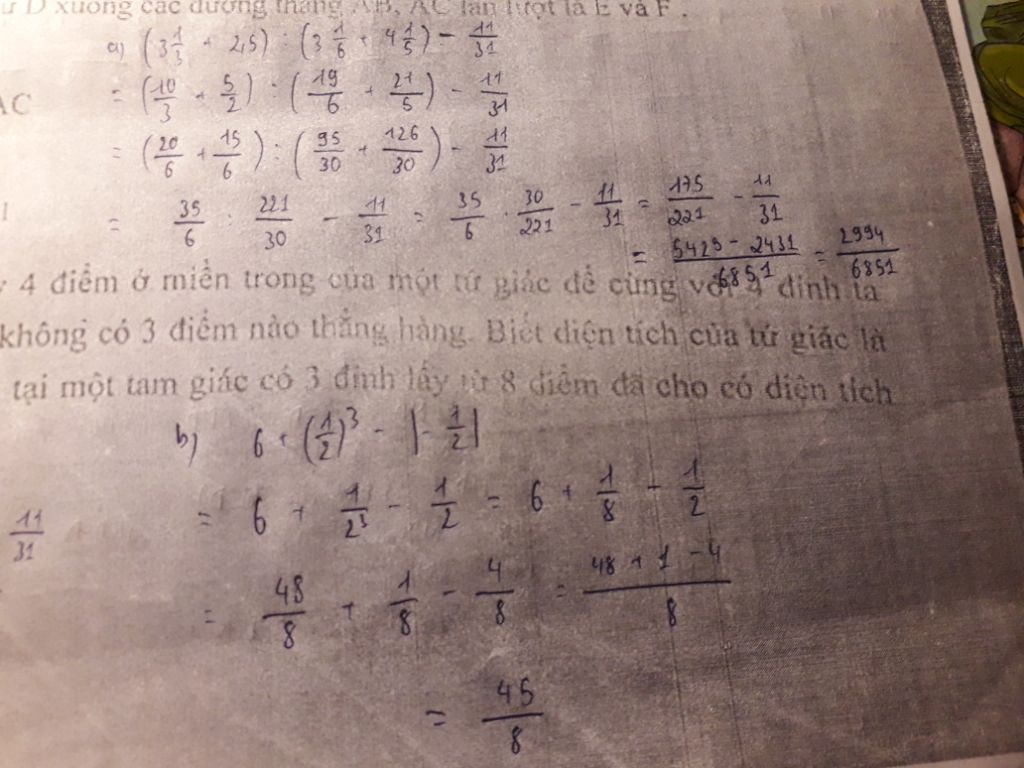 ừ D xuống các đường thẳng AB, AC lần lượt là E và F .
a) (3 1/3 + 2,5) : (3 1/6 + 4 1/5) - 11/31
AC
= (10/3 + 5/2) : (19/6 + 21/5) - 11/31
= (20/6 + 15/6) : (95/30 + 126/30) - 11/31
= 35/6 : 221/30 - 11/31 = 35/6 . 30/221 - 11/31 = 175/221 - 11/31
= (5425 - 2431)/6851 = 2994/6851
4 điểm ở miền trong của một tứ giác để cùng với 4 đỉnh ta
không có 3 điểm nào thẳng hàng. Biết diện tích của tứ giác là
tại một tam giác có 3 đỉnh lấy từ 8 điểm đã cho có diện tích
b) 6 + (1/2)^3 - |-1/2|
11/31
= 6 + 1/2^3 - 1/2 = 6 + 1/8 - 1/2
= 48/8 + 1/8 - 4/8 = (48 + 1 - 4)/8
= 45/8